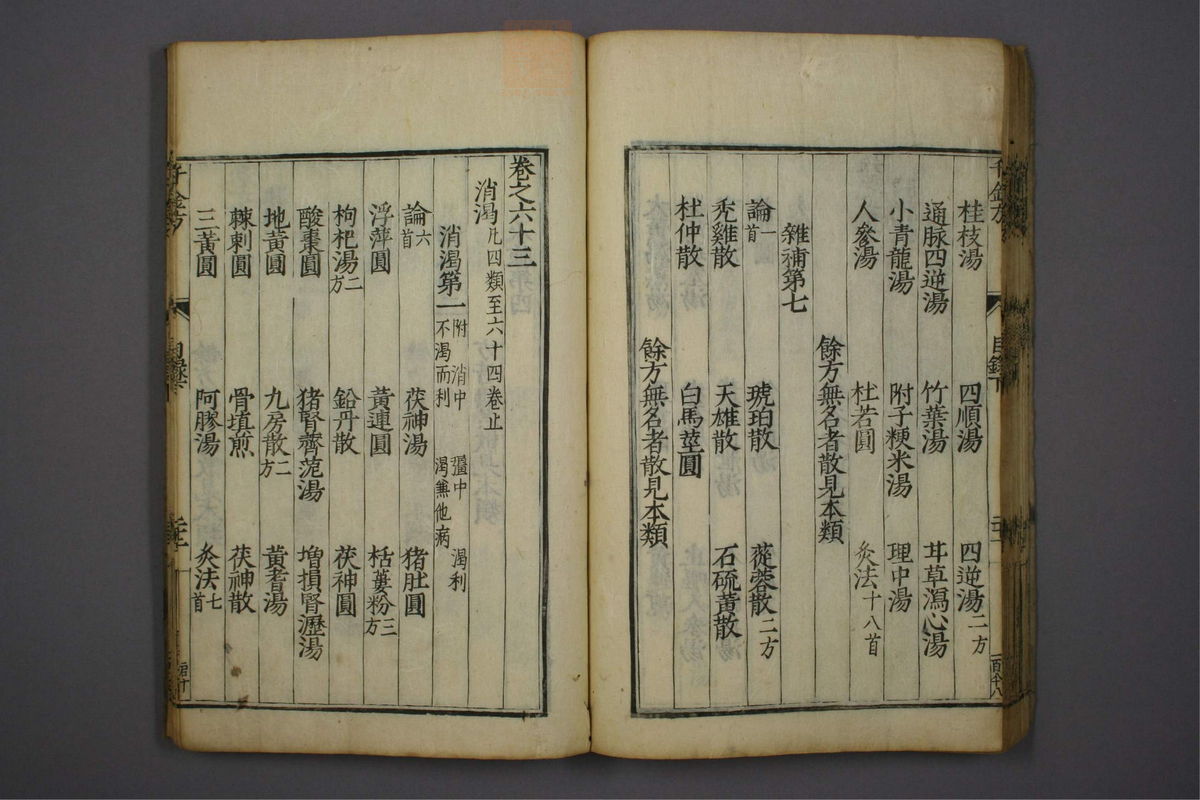 桂枝湯 四順湯 四逆湯二方
通脉四逆湯 竹葉湯 甘草瀉心湯
小青龍湯 附子粳米湯 理中湯
人參湯 杜若圓 灸法十八首
餘方無名者散見本類
雜補第七
論一首 琥珀散 蓯蓉散二方
禿雞散 天雄散 石硫黃散
杜仲散 白馬莖圓
餘方無名者散見本類
千金方 目錄下
卷之六十三
消渴凡四類至六十四卷止
消渴第一附 消中 彊中 渴利 不渴而利 渴兼他病
論六首 茯神湯 猪肚圓
浮萍圓 黃連圓 栝蔞粉三方
枸杞湯二方 鉛丹散 茯神圓
酸棗圓 猪腎薺苨湯 增損腎瀝湯
地黃圓 九房散二方 黃耆湯
棘刺圓 骨填煎 茯神散
三黃圓 阿膠湯 灸法七首
千金方 目錄下